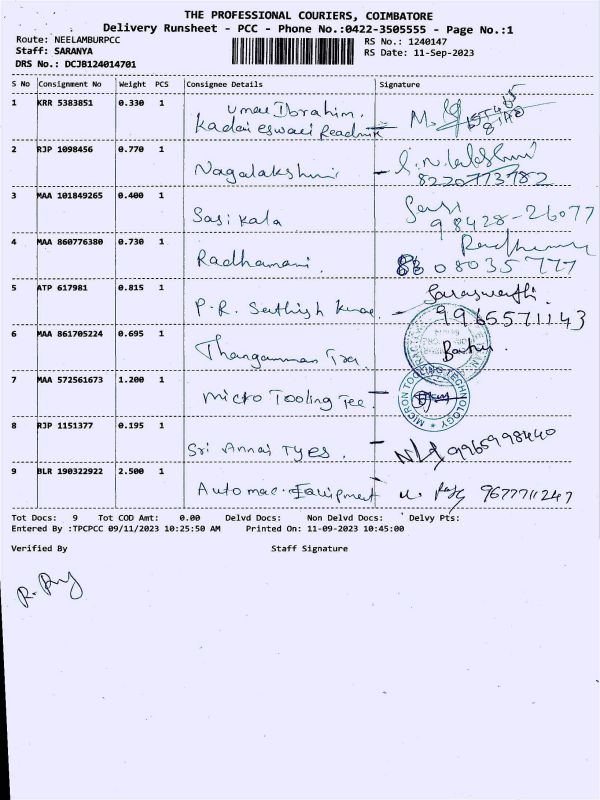 THE PROFESSIONAL COURIERS, COIMBATORE
Delivery Runsheet - PCC - Phone No.:0422-3505555 - Page No.:1
Route: NEELAMBURPCC
RS No.: 1240147
Staff: SARANYA
RS Date: 11-Sep-2023
DRS No.: DCJB124014701
S No Consignment No Weight PCS Consignee Details Signature
1 KRR 5383851 0.330 1 Umar Ibrahim.
Kadai eswari
2 RJP 1098456 0.770 1 Nagalakshmi
8220773782
3 MAA 101849265 0.400 1 Sasikala Sasi
98428-26077
4 MAA 860776380 0.730 1 Radhamani.
08035777
5 ATP 617981 0.815 1 P.R. Sathish Saraswathi.
9965571143
6 MAA 861705224 0.695 1 Thangamman
7 MAA 572561673 1.200 1 Micro Tooling Tec. MICRON TOOLING TECHNOLOGY
8 RJP 1151377 0.195 1 Sri Annai Tyes. 9965998440
9 BLR 190322922 2.500 1 Automac Equipment 9677711247
Tot Docs: 9 Tot COD Amt: 0.00 Delvd Docs: Non Delvd Docs: Delvy Pts:
Entered By :TPCPCC 09/11/2023 10:25:50 AM Printed On: 11-09-2023 10:45:00
Verified By Staff Signature